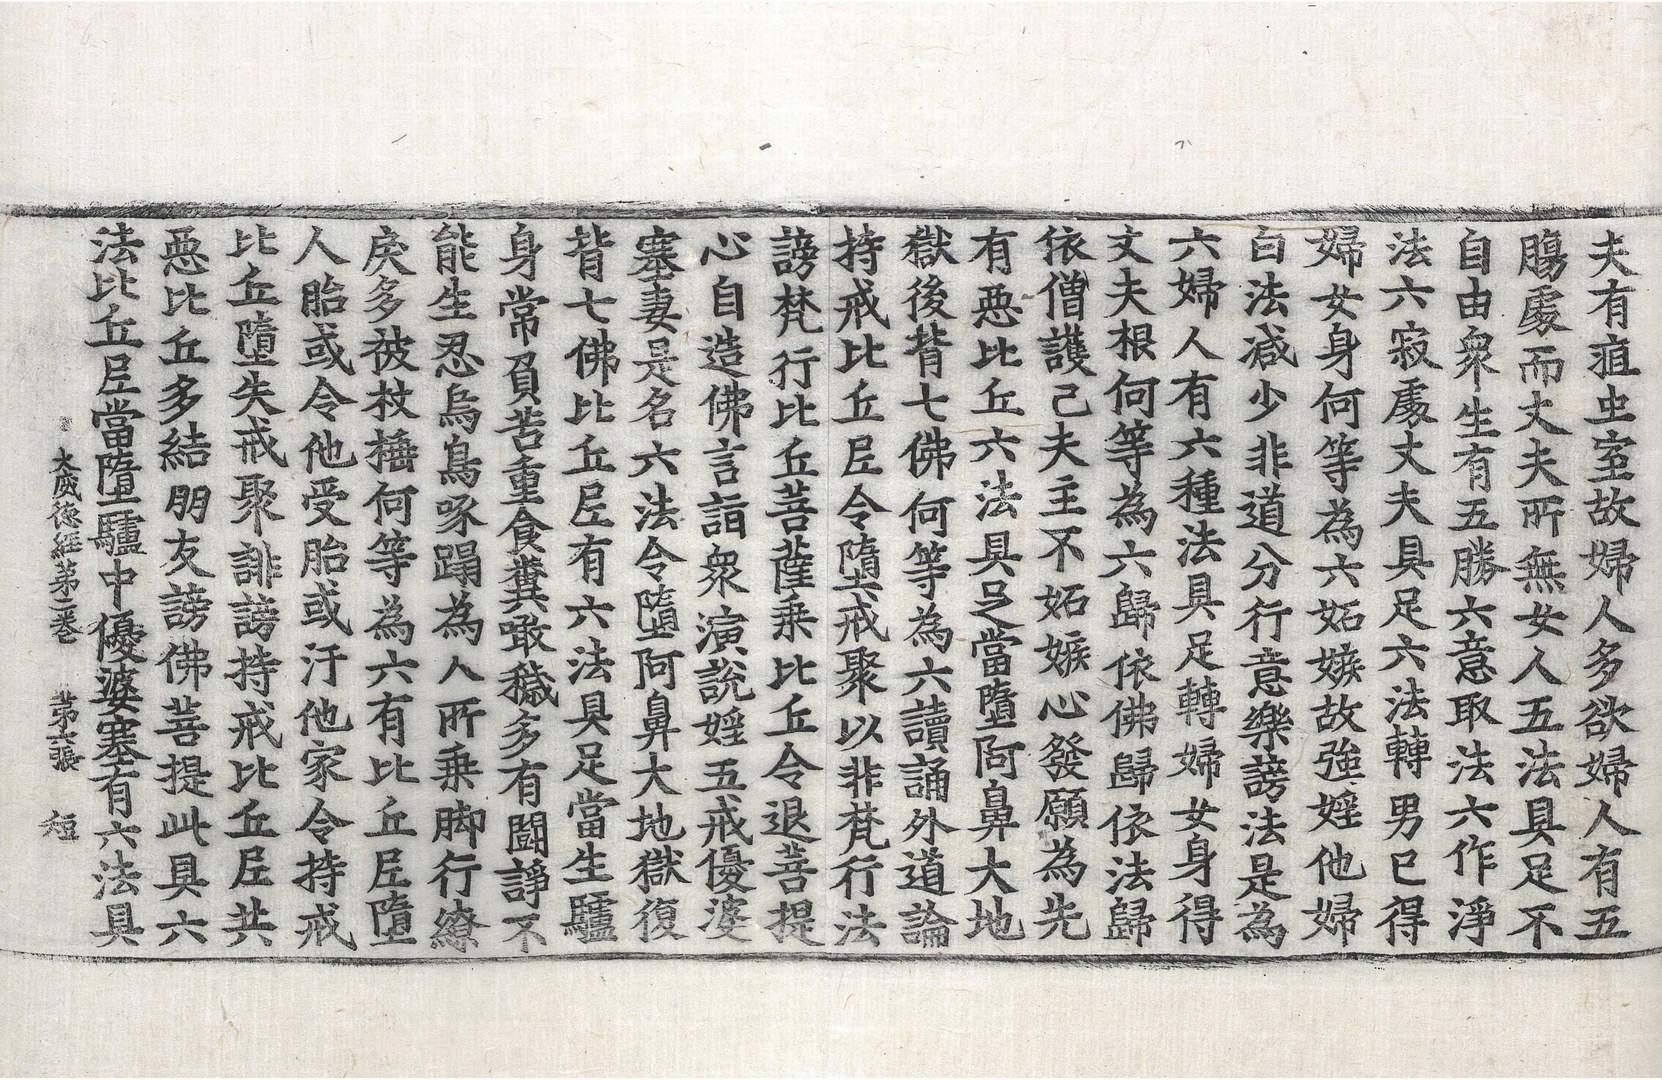 夫有疽虫室故婦人多欲婦人有五
膓處而丈夫所無女人五法具足不
自由衆生有五勝六意取法六作淨
法六寂處丈夫具足六法轉男已得
婦女身何等為六妬嫉故強婬他婦
白法减少非道分行意樂謗法是為
六婦人有六種法具足轉婦女身得
丈夫根何等為六歸依佛歸依法歸
依僧護己夫主不妬嫉心發願為先
有惡比丘六法具足當墮阿鼻大地
獄後背七佛何等為六讀誦外道論
持戒比丘尼令墮失戒聚以非梵行法
謗梵行比丘菩薩乗比丘令退菩提
心自造佛言詣衆演說婬五戒優婆
塞妻是名六法令墮阿鼻大地獄復
背七佛比丘尼有六法具足當生驢
身常負苦重食糞噉穢多有鬪諍不
能生忍烏鳥啄蹋為人所乗脚行繚
戾多被杖捶何等為六有比丘尼墮
人胎或令他受胎或汙他家令持戒
比丘墮失戒聚誹謗持戒比丘尼共
惡比丘多結朋友謗佛菩提此具六
法比丘尼當墮驢中優婆塞有六法具
大威德經第二卷 第六張 短